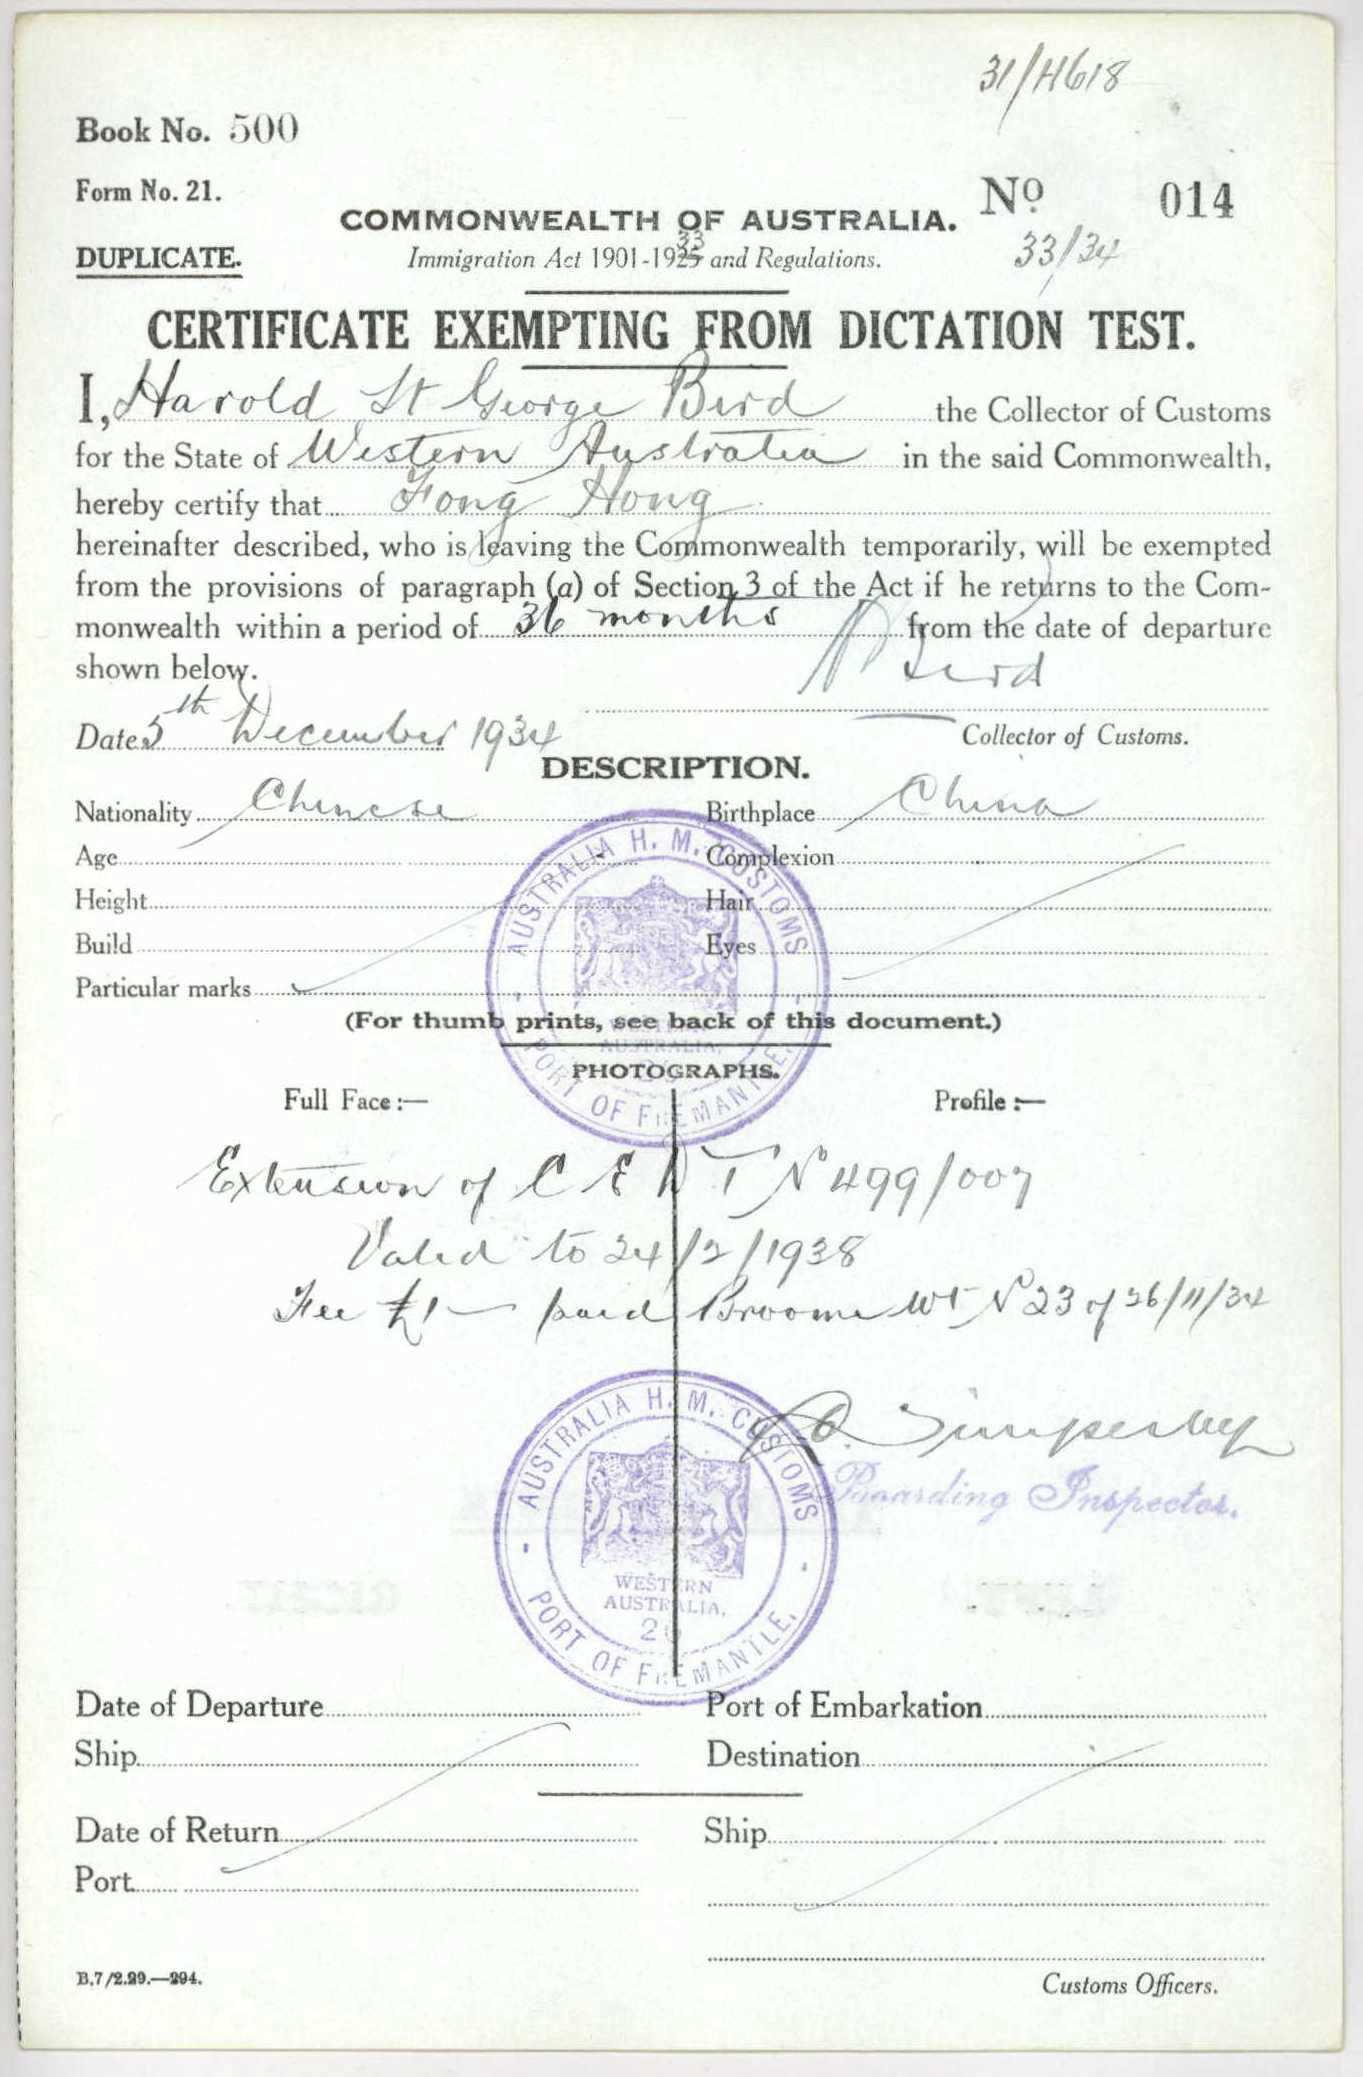 31/4618
Book No. 500
Form No. 21.
COMMONWEALTH OF AUSTRALIA.
No 014
DUPLICATE.
Immigration Act 1901-1925 33 and Regulations.
33/34
CERTIFICATE EXEMPTING FROM DICTATION TEST.
I, Harold St George Bird the Collector of Customs
for the State of Western Australia in the said Commonwealth,
hereby certify that Fong Hong
hereinafter described, who is leaving the Commonwealth temporarily, will be exempted
from the provisions of paragraph (a) of Section 3 of the Act if he returns to the Com-
monwealth within a period of 36 months from the date of departure
shown below.
Bird
Date 5th December 1934
Collector of Customs.
DESCRIPTION.
Nationality Chinese Birthplace China
Age Complexion
Height Hair
Build Eyes
Particular marks
(For thumb prints, see back of this document.)
AUSTRALIA H. M. CUSTOMS
WESTERN
AUSTRALIA.
PORT OF FREMANTLE.
PHOTOGRAPHS.
Full Face:— Profile:—
Extension of C E D T No 499/007
Valid to 24/2/1938
Fee £1 — paid Broome No 23 of 26/11/34
Boarding Inspector.
AUSTRALIA H. M. CUSTOMS
WESTERN
AUSTRALIA.
PORT OF FREMANTLE.
Date of Departure Port of Embarkation
Ship Destination
Date of Return Ship
Port
B.7/2.29.—294.
Customs Officers.